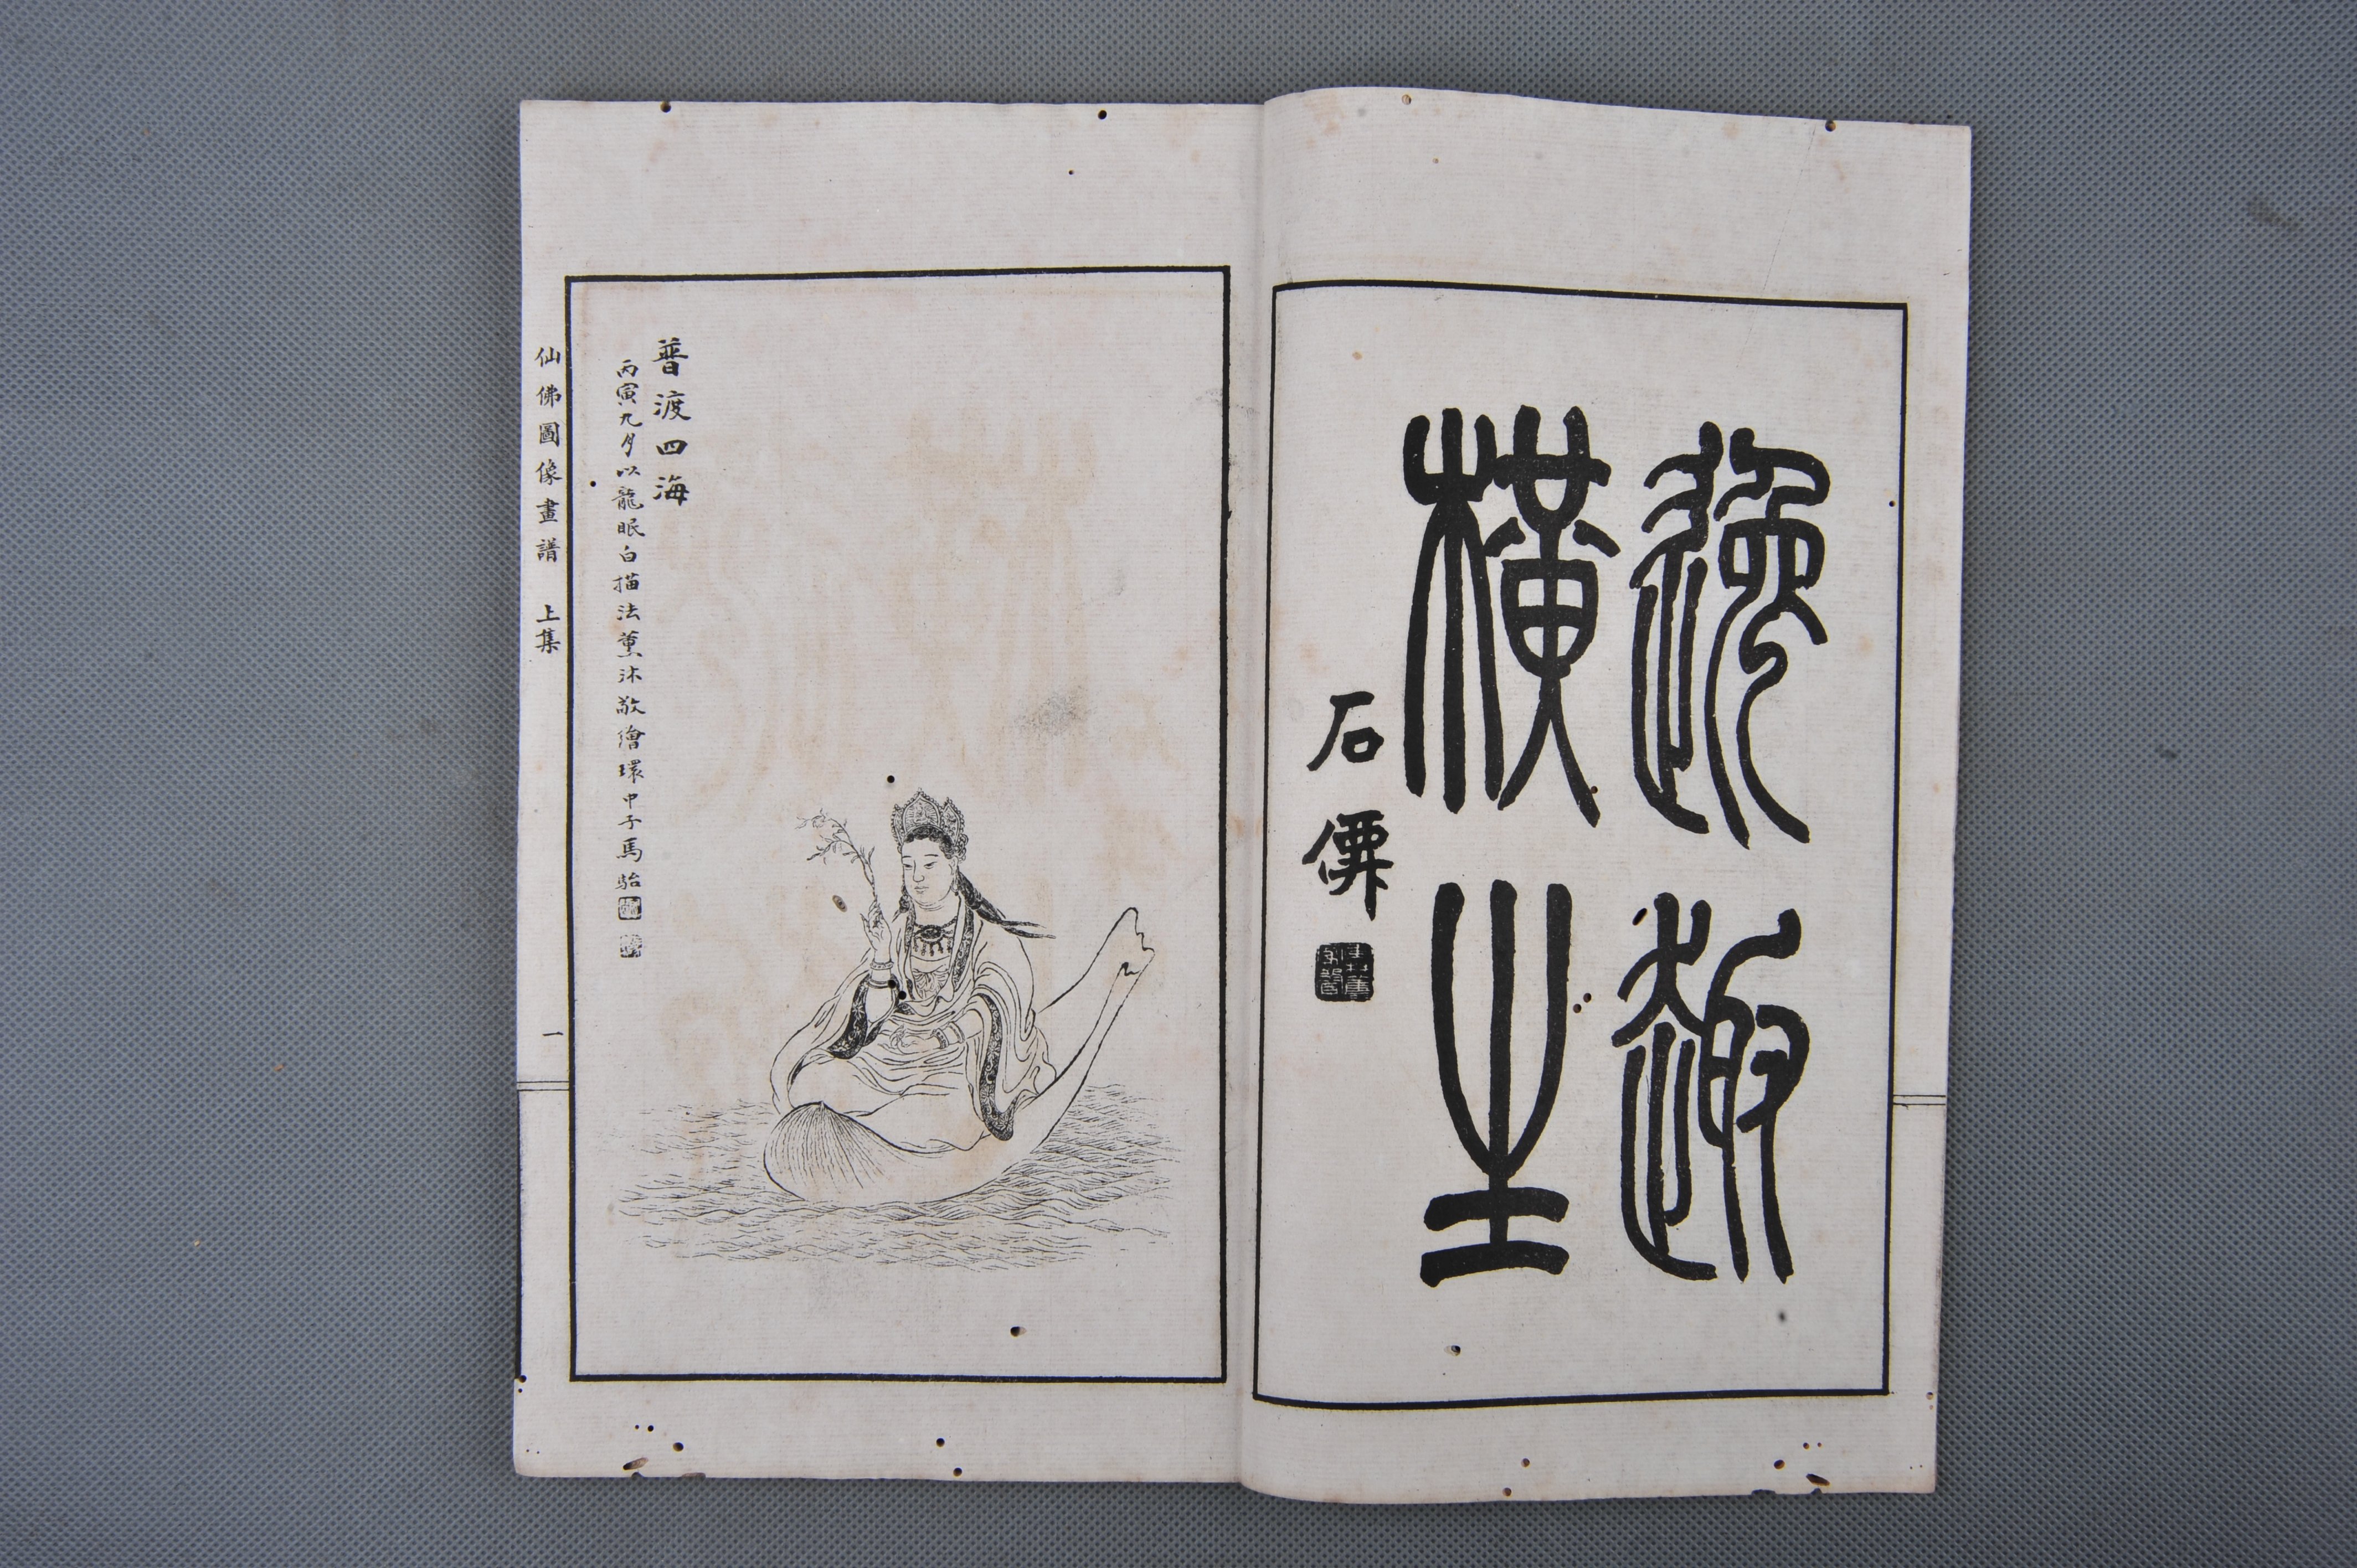 逸趣
橫生
石僊
普渡四海
丙寅九月以龍眠白描法薰沐敬繪環中子馬駘
仙佛圖像畫譜 上集
一